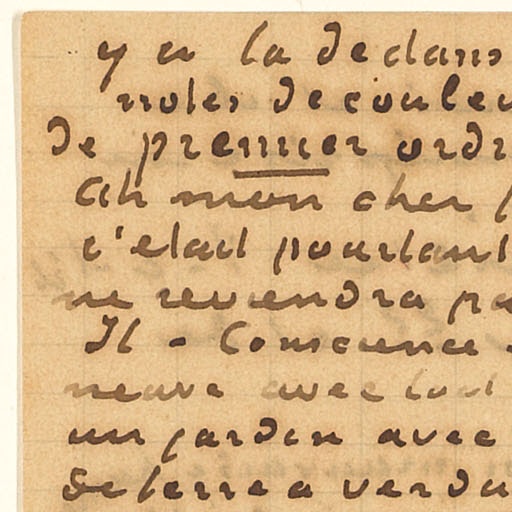 y a la dedans
notes de couleu
de premier ordr
Ah mon cher
c'etait pourtant
ne reviendra pa
H - Conscience
neuve avec tout
un jardin avec
de terre a verdu